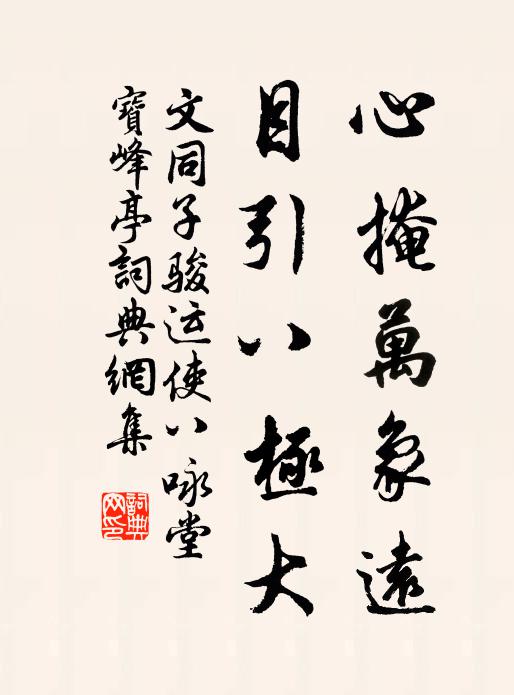 心掩萬象遠
目引八極大
文同子駿运使八咏堂
寶峰亭詞典網集
詞典網印